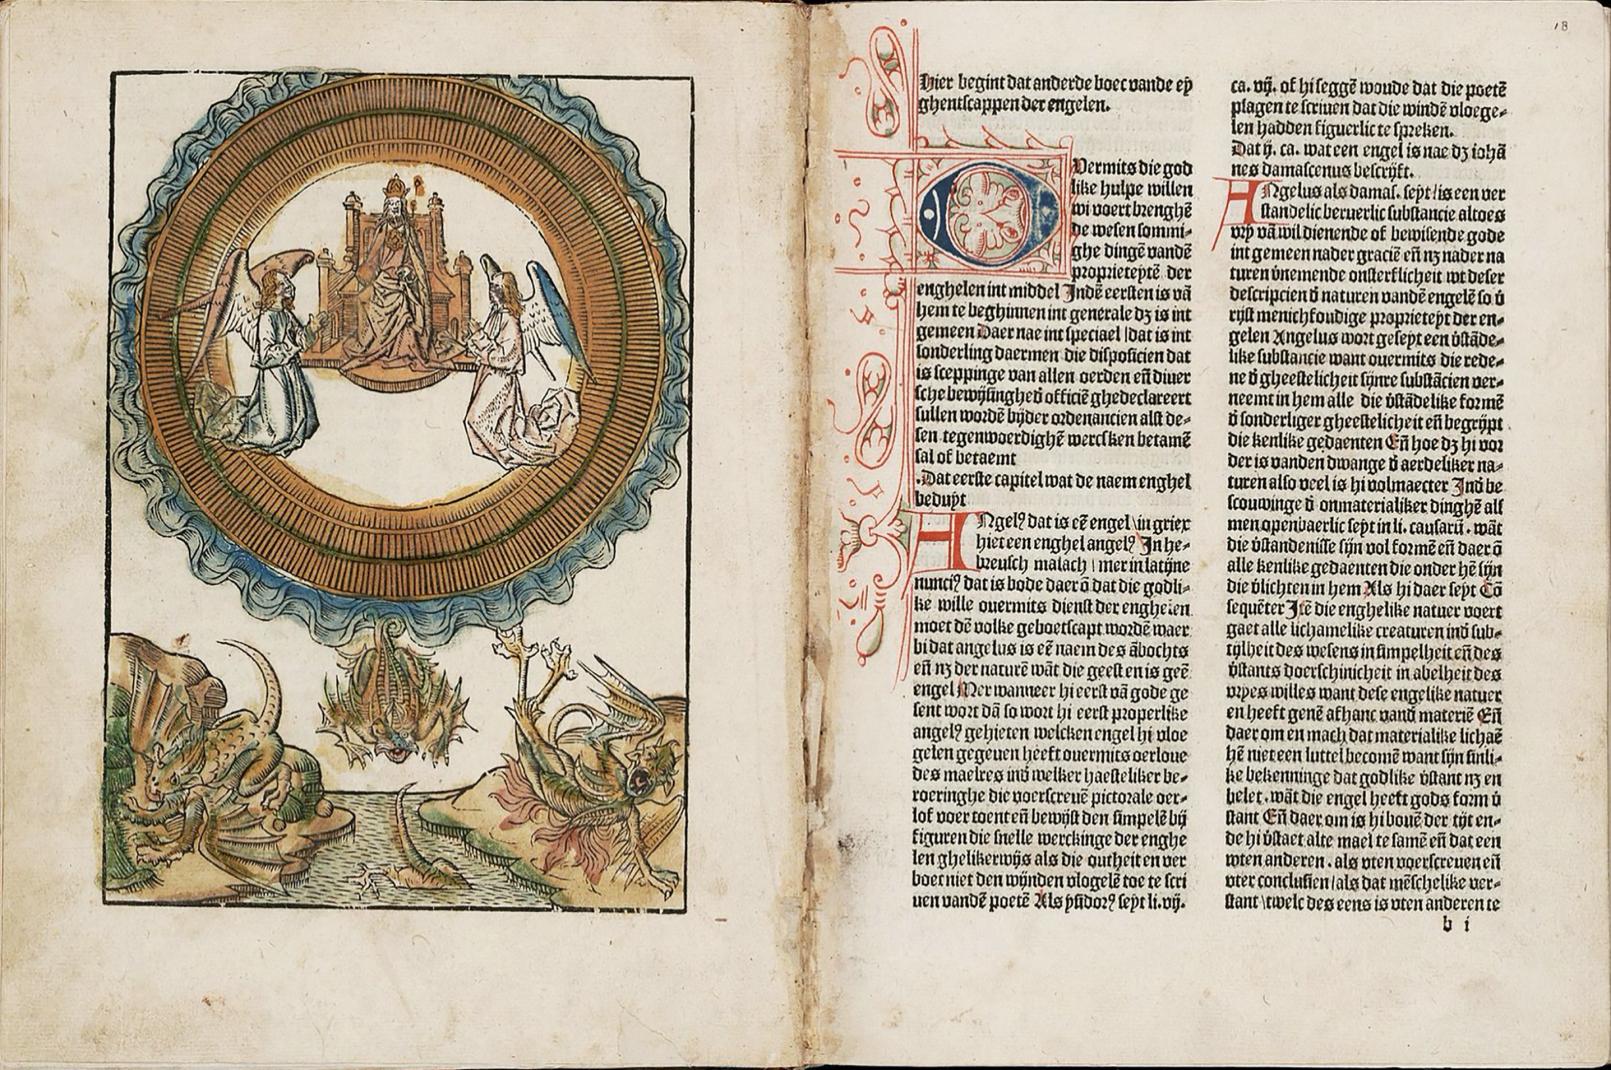 18
Hier begint dat anderde boec vande ey
ghentscappen der engelen.
OVermits die god
like hulpe willen
wi voert brenghē
de wesen sommi-
ghe dingē vandē
proprieteytē der
enghelen int middel Indē eersten is vā
hem te beghinnen int generale dꝫ is int
gemeen Daer nae int speciael / dat is int
sonderling daermen die disposicien dat
is sceppinge van allen oerden eñ diuer
sche bewijsinghe ď officiē ghedeclareert
sullen wordē byder ordenancien alst de-
sen tegenwoerdighē wercken betamē
sal of betaemt
.Dat eerste capitel wat de naem enghel
beduyt
ANgelꝰ dat is eē engel / in griex
hiet een enghel angelꝰ In he-
breusch malach / mer in latijne
nunciꝰ dat is bode daer ō dat die godli-
ke wille ouermits dienst der enghelen
moet dē volke geboetscapt wordē waer
bi dat angelus is eē naem des ābochts
eñ nꝫ der naturē wāt die geest en is geē
engel Mer wanneer hi eerst vā gode ge
sent wort dā so wort hi eerst properlike
angelꝰ gehieten welcken engel hi vloe
gelen gegeuen heeft ouermits oerloue
des maelres inď welker haesteliker be-
roeringhe die voerscreuē pictorale oer-
lof voer toent eñ bewijst den simpelē bij
figuren die snelle werckinge der enghe
len ghelikerwijs als die outheit en ver
boet niet den wijnden vlogelē toe te scri
uen vandē poetē Als ysidorꝰ seyt li. vij.
ca. vij. of hi seggē woude dat die poetē
plagen te scriuen dat die windē vloege-
len hadden figuerlic te spreken.
Dat ij. ca. wat een engel is nae dꝫ iohā
nes damascenus bescrijft.
ANgelus als damas. seyt / is een ver
standelic beruerlic substancie altoes
vrij vā wil dienende of bewisende gode
int gemeen nader graciē eñ nꝫ nader na
turen v̄nemende onsterflicheit wt deser
descripcien ď naturen vandē engelē so v̄
rijst menichfoudige proprieteyt der en-
gelen Angelus wort geseyt een v̄stāde-
like substancie want ouermits die rede-
ne ď gheestelicheit sijnre substācien ver-
neemt in hem alle die v̄stādelike formē
ď sonderliger gheestelicheit eñ begrijpt
die kenlike gedaenten Eñ hoe dꝫ hi vor
der is vanden dwange ď aerdeliker na-
turen also veel is hi volmaecter Inď be
scouwinge ď onmaterialiker dinghē als
men openbaerlic seyt in li. causarū. wāt
die v̄standenisse sijn vol formē eñ daer ō
alle kenlike gedaenten die onder hē sijn
die v̄lichten in hem Als hi daer seyt Cō
sequēter Itē die enghelike natuer voert
gaet alle lichamelike creaturen inď sub-
tijlheit des wesens in simpelheit eñ des
v̄stants doerschinicheit in abelheit des
vryes willes want dese engelike natuer
en heeft genē afhanc vanď materiē Eñ
daer om en mach dat materialike lichaē
hē niet een luttel becomē want sijn sinli-
ke bekenninge dat godlike v̄stant nꝫ en
belet. wāt die engel heeft gods form v̄
stant Eñ daer om is hi bouē der tijt en-
de hi v̄staet alte mael te samē eñ dat een
wten anderen . als vten voerscreuen eñ
vter conclusien / als dat mēschelike ver-
stant / twelc des eens is vten anderen te
b i